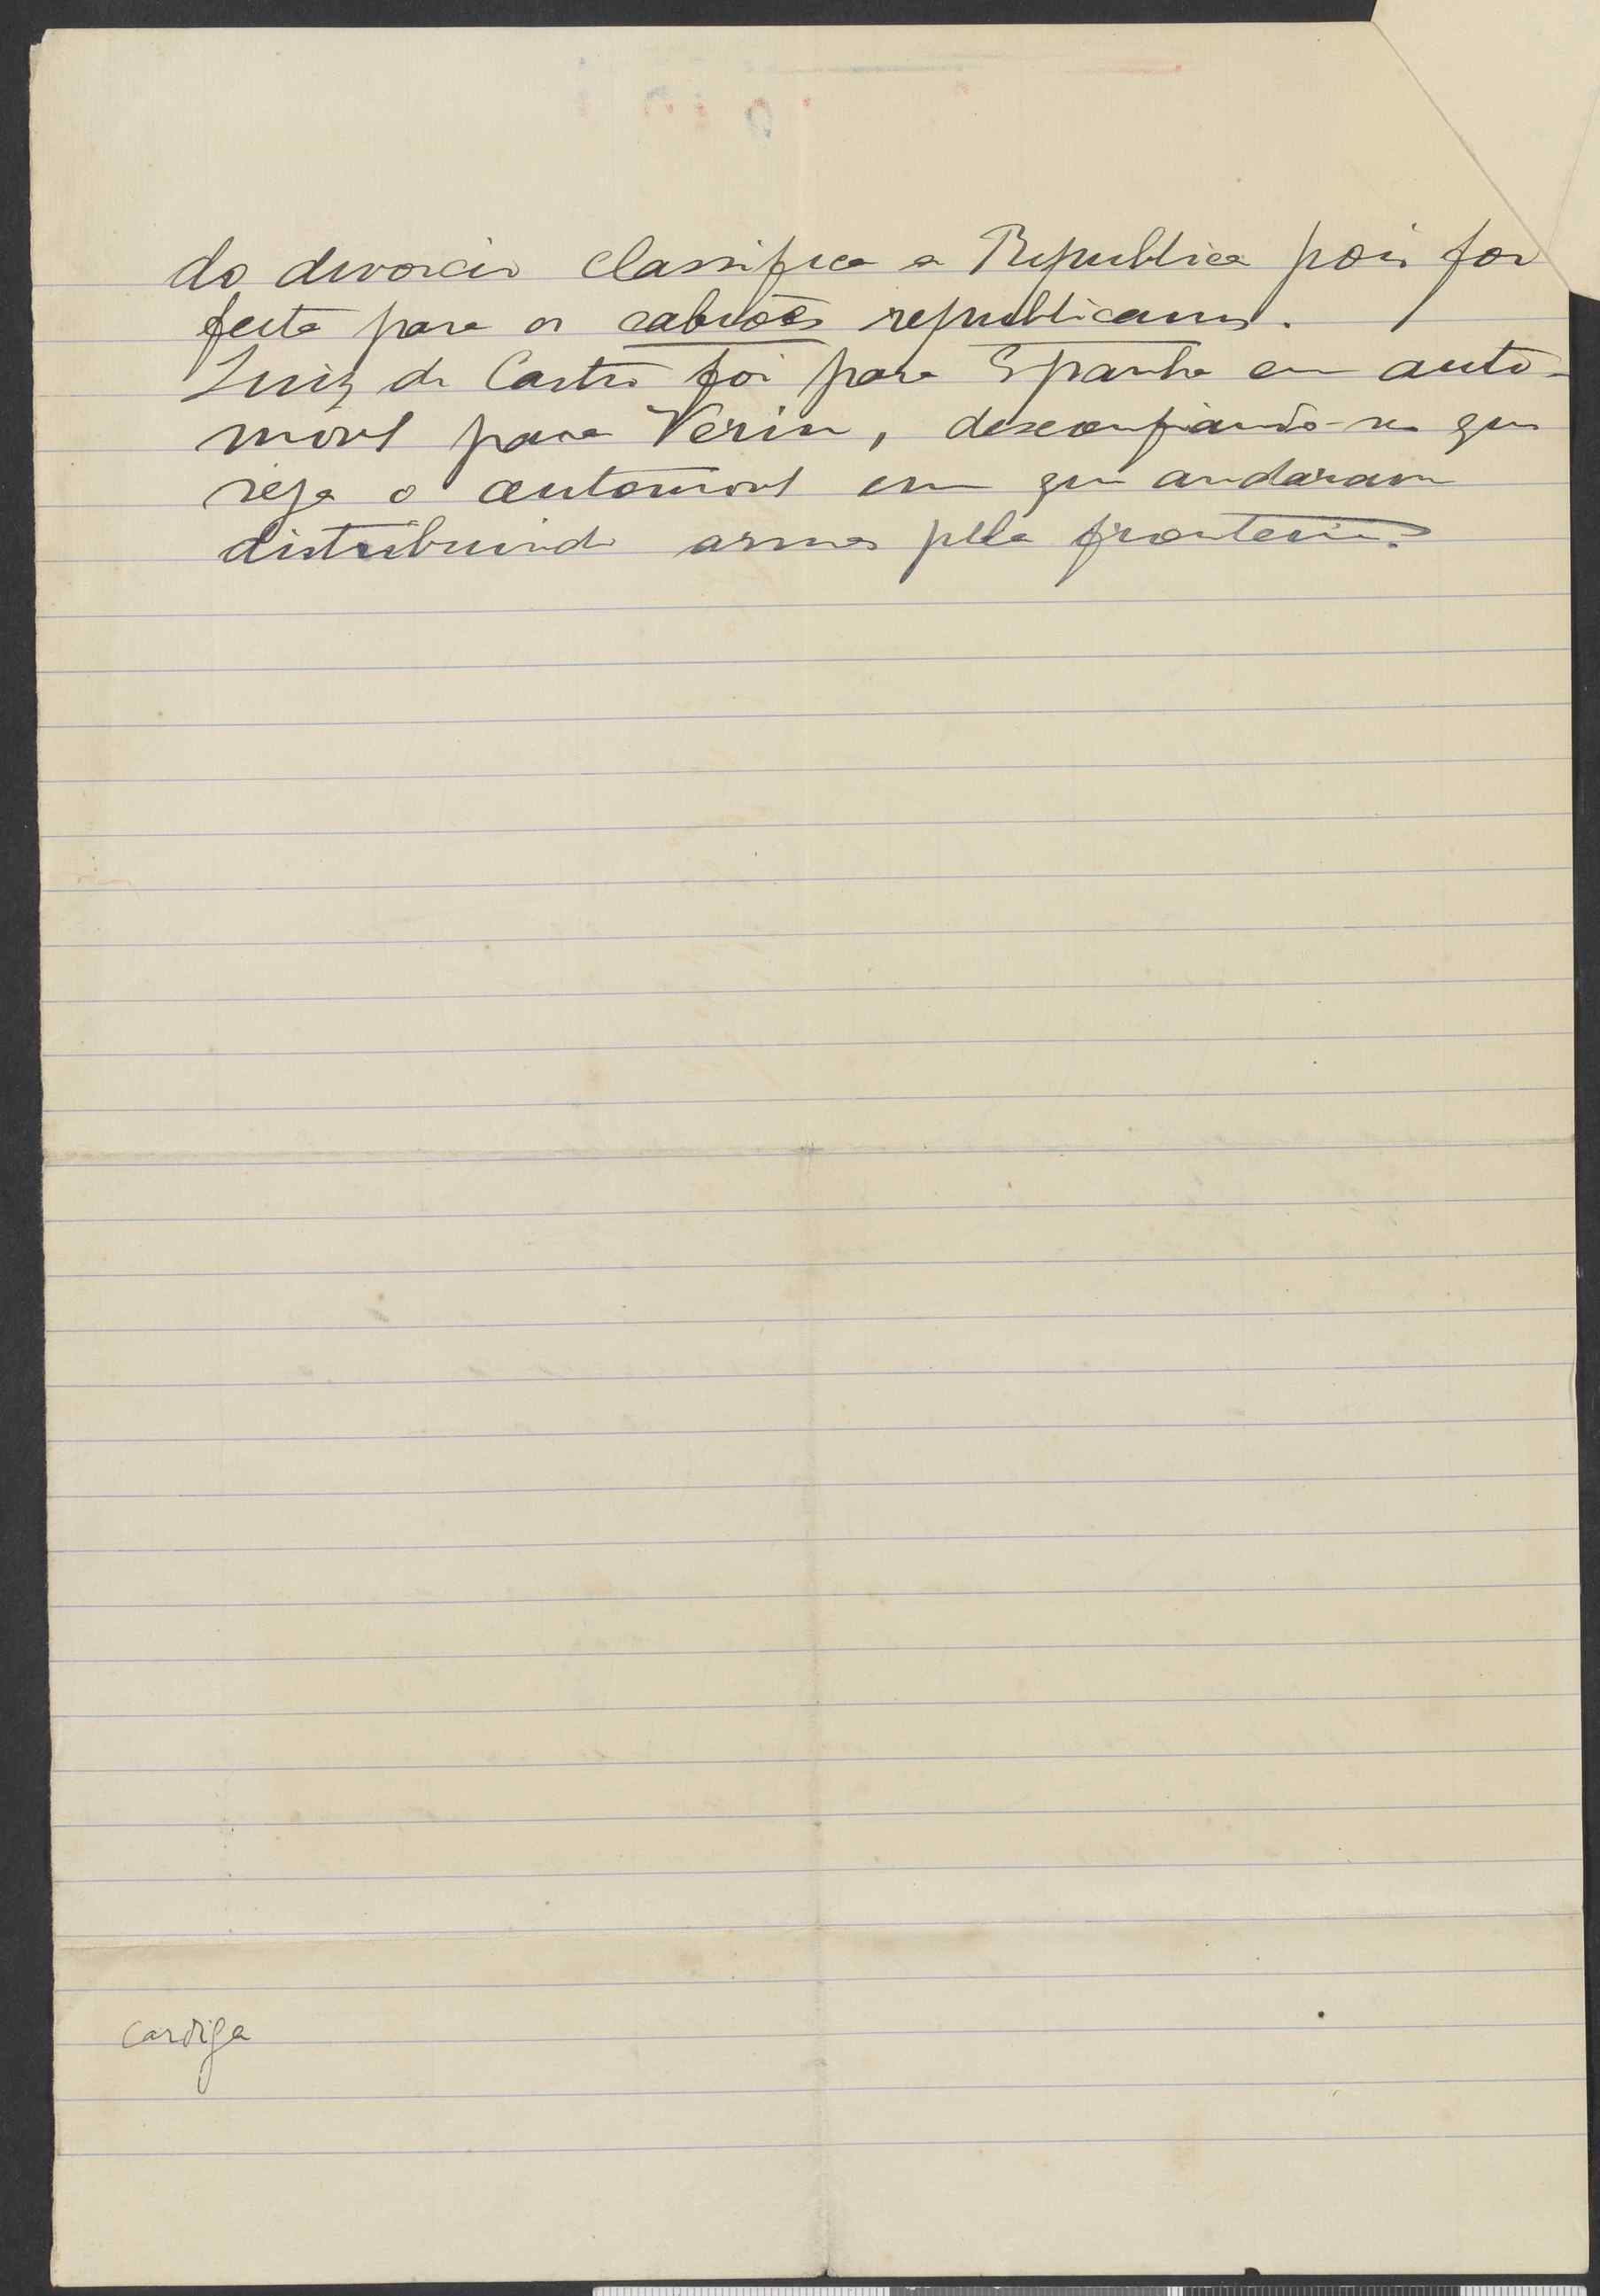 do divorcio classifica a Republica pois foi
feita para os cabrões republicanos.
Luiz de Castro foi para Espanha em auto-
movel para Verin, desconfiando-se que
seja o automovel em que andaram
distribuindo armas pela fronteira.
cardiga